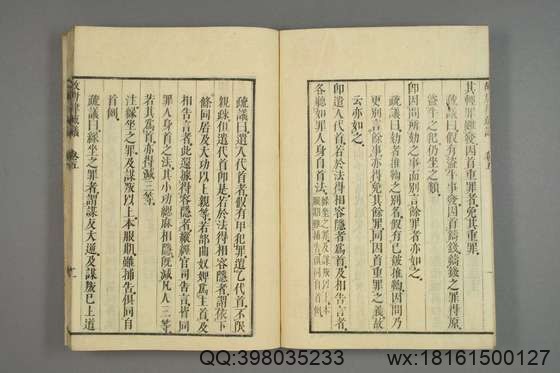 其輕罪雖發因首重罪
疏議曰假有盜牛事發因首鑄錢鑄錢之罪得原
盜牛之犯仍坐之類
即因問所劾之事而別言餘罪者亦如之
疏議曰劾者推鞫之別名假有已被推鞫因問乃
更別言餘事亦得免其餘罪同因首重罪之義故
云亦如之
即遣人代首若於法得相容隱者為首及相告言者
各聽如罪人身自首法緣坐之罪及謀叛以上本服期雖捕告俱同自首例
疏議曰遣人代首者假有甲犯罪遣乙代首不限
親疎但遣代首即是若於法得相容隱者謂依下
條同居及大功以上親等若部曲奴婢為主首及
相告言者此還據得容隱者縱經官司告言皆同
罪人身首之法其小功緦麻相隱旣減凡人三等
若其為首亦得減三等
注緣坐之罪及謀叛以上本服期雖捕告俱同自
首例
疏議曰緣坐之罪者謂謀反大逆及謀叛已上道
QQ:398035233
wx:18161500127